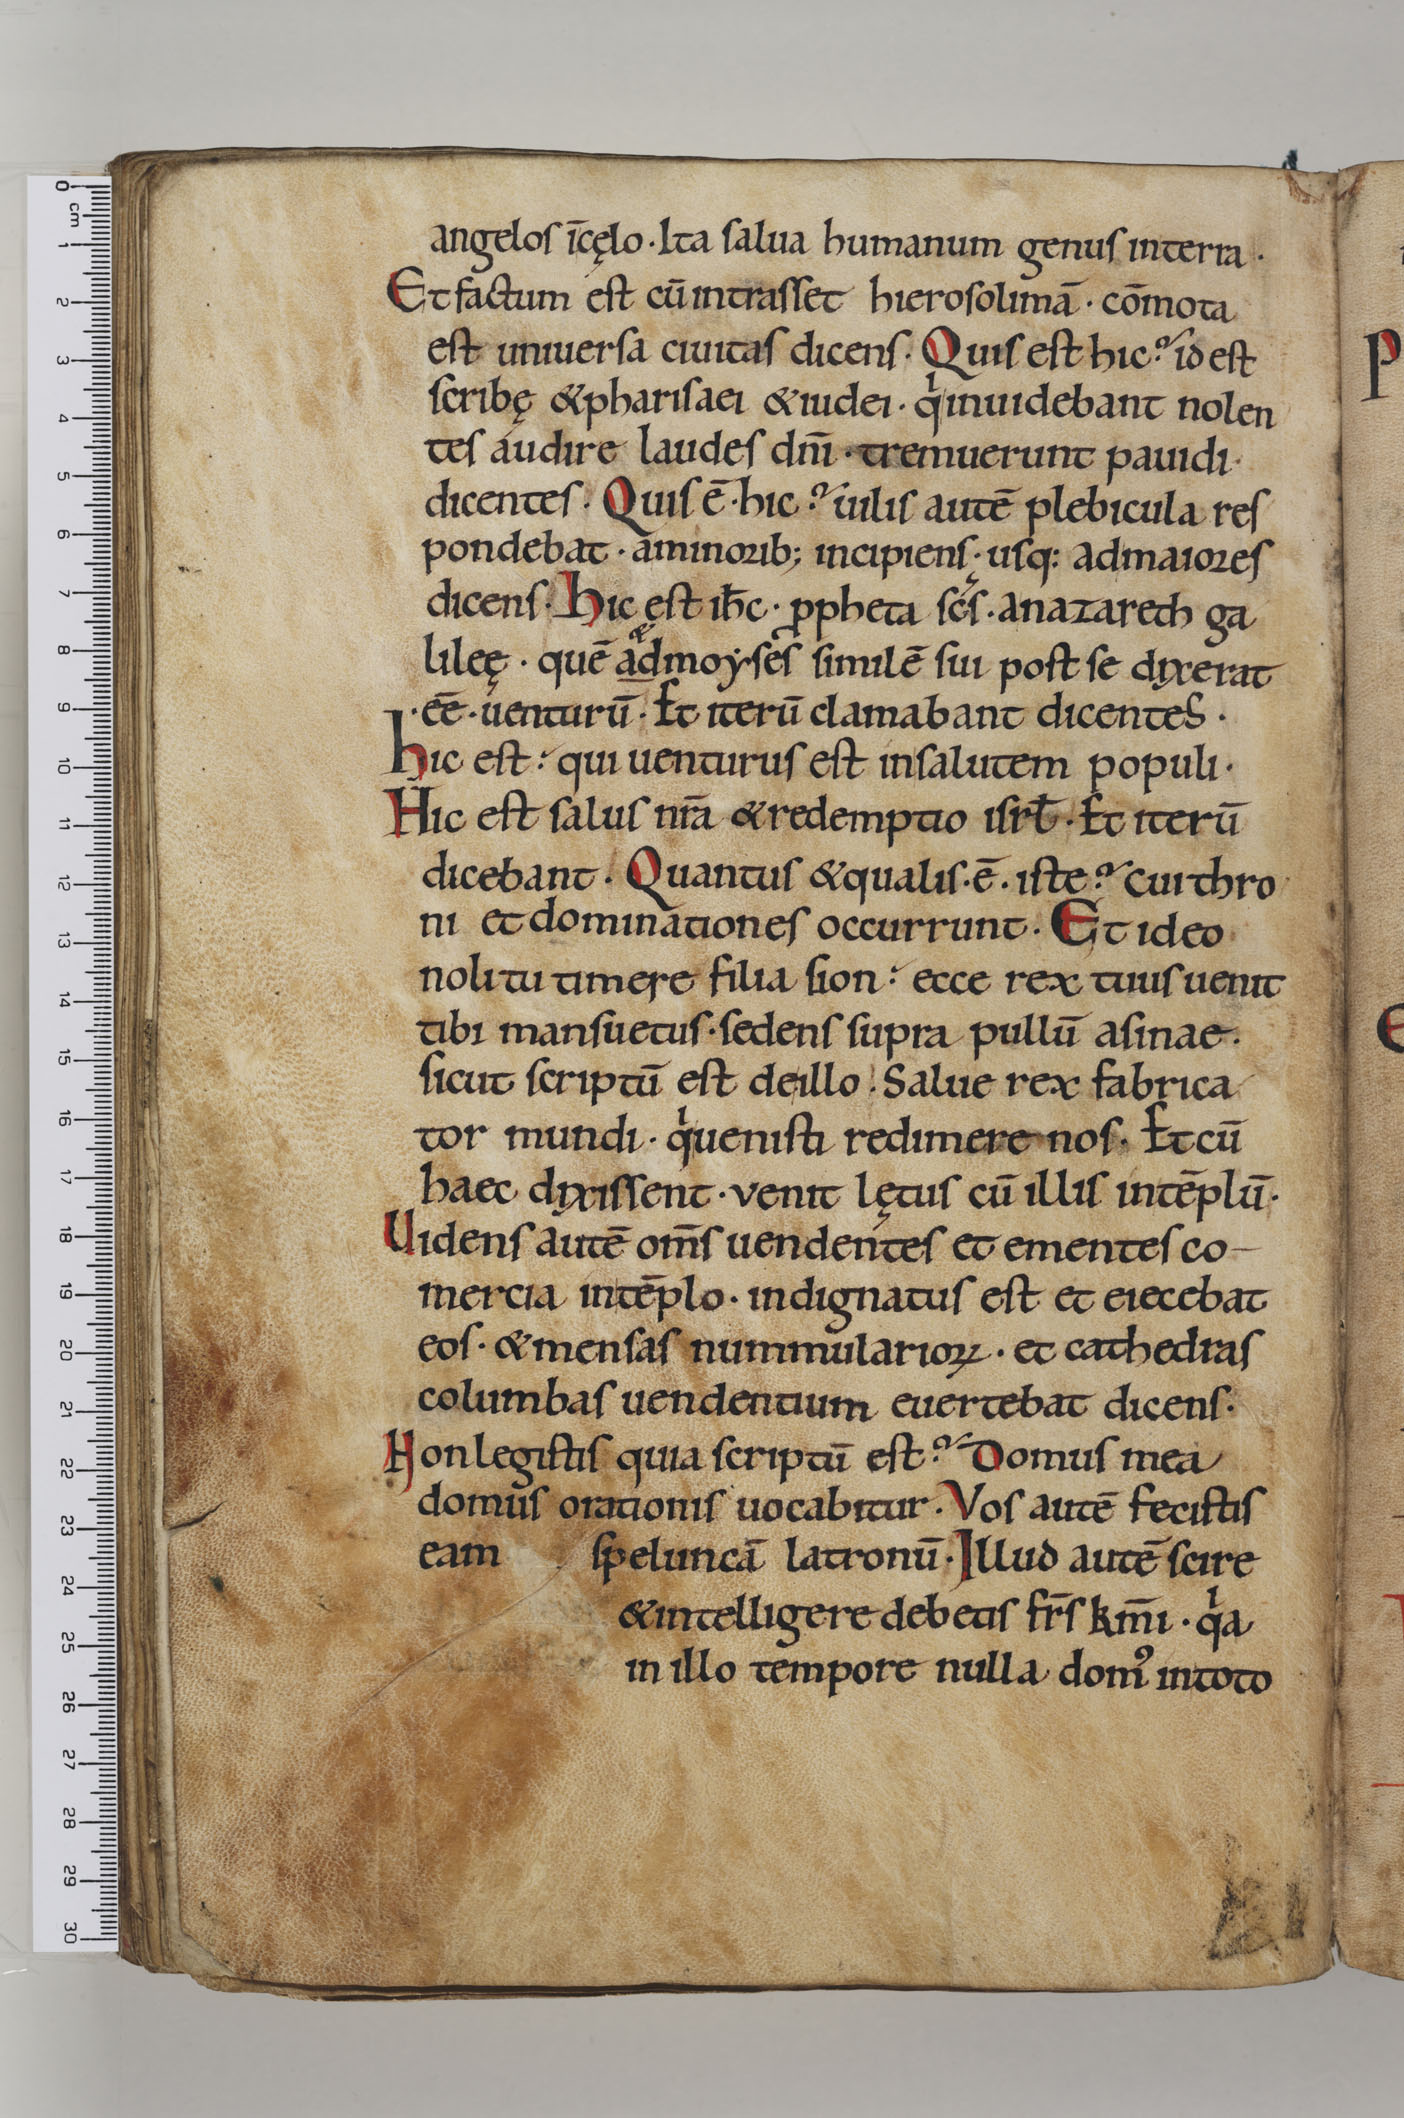 angelos īcęlo · Ita salua humanum genus interra ·
Et factum est cū intrasset hierosolimā · cōmota
est uniuersa ciuitas dicens · Quis est hic? id est
scribę & pharisaei & iudei · qi inuidebant nolen
tes audire laudes dn̄i · tremuerunt pauidi ·
dicentes · Quis ē · hic? uilis autē plebicula res
pondebat · aminorib; incipiens · usq: admaiores
dicens · Hic est ih̄c · ꝓpheta sc̄s · anazareth ga
lileę · quē ad moẏsęs similē sui post se dixerat
· ēe · uenturū · Et iterū clamabant dicentes ·
Hic est : qui uenturus est insalutem populi ·
Hic est salus nr̄a & redemptio isrł · Et iterū
dicebant · Quantus & qualis · ē · iste? Cui thro
ni et dominationes occurrunt · Et ideo
noli tu timere filia sion : ecce rex tuus uenit
tibi mansuetus · sedens supra pullū asinae ·
sicut scriptū est deillo · Salue rex fabrica
tor mundi · qi uenisti redimere nos · Et cū
haec dixissent · venit lętus cū illis intēplū ·
Uidens autē om̄s uendentes et ementes co-
mercia intēplo · indignatus est et eiecebat
eos · & mensas nummularioꝝ · et cathedras
columbas uendentium euertebat dicens ·
Non legistis quia scriptū est? Domus mea
domus orationis uocabitur · Vos autē fecistis
eam speluncā latronū · Illud autē scire
& intelligere debetis fr̄s km̄i · qia
in illo tempore nulla domꝰ intoto